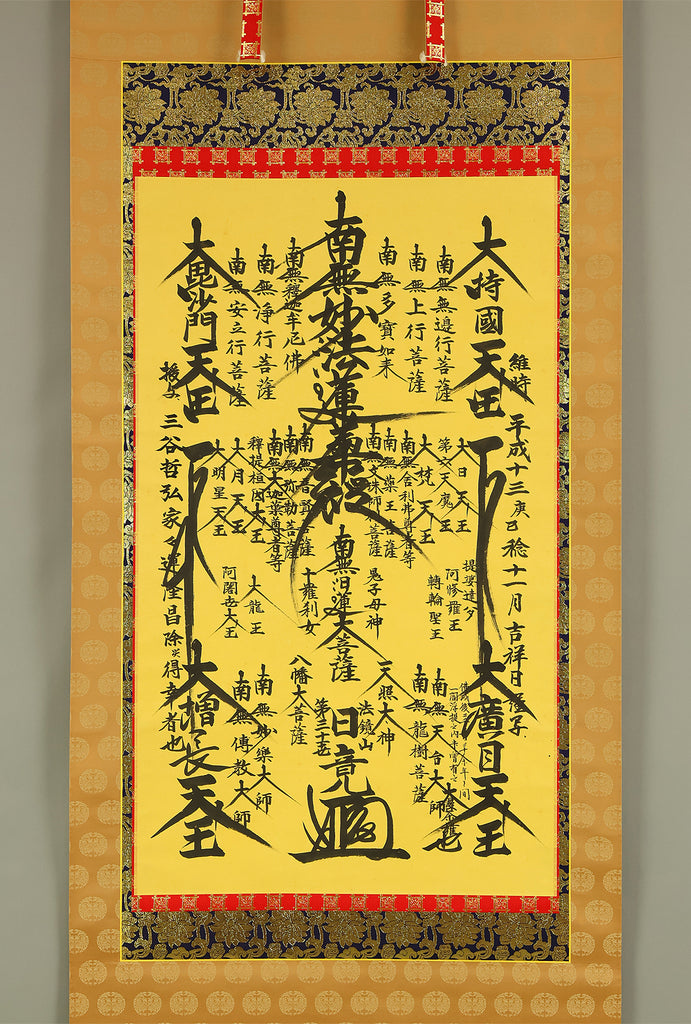 維時 平成十三庚巳稔十一月吉祥日
大持國天王
南無無邊行菩薩
南無上行菩薩
南無多寶如来
南無妙法蓮華経
南無釋迦牟尼佛
南無浄行菩薩
南無安立行菩薩
大毘沙門天王
授女 三谷哲弘家
運隆昌除災得幸者也
大日天王
第六天魔王
大梵天王
南無舎利弗尊者等
南無薬王菩薩
南無文殊師利菩薩
南無普賢菩薩
南無弥勒菩薩
南無大迦葉尊者等
釋提桓因大王
大月天王
大明星天王
提婆達多
阿修羅王
轉輪聖王
鬼子母神
南無日蓮大菩薩
十羅刹女
大龍王
阿闍世大王
大廣目天王
南無天台大師
南無龍樹菩薩
天照大神
法鏡山
日竟
第三十五
八幡大菩薩
南無妙樂大師
南無傳教大師
大増長天王